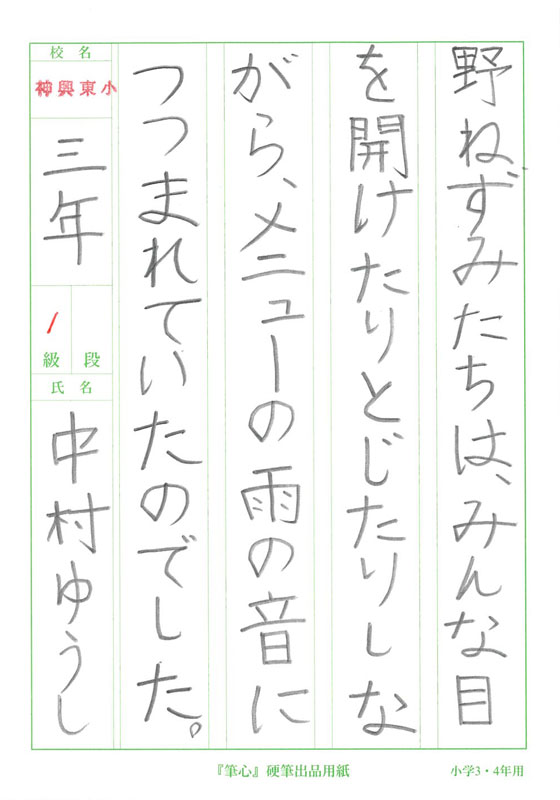 野ねずみたちは、みんな目
を開けたりとじたりしな
がら、メニューの雨の音に
つつまれていたのでした。
校名
神興東小
三年
段
級
1
氏名
中村ゆうし
『筆心』硬筆出品用紙
小学3・4年用